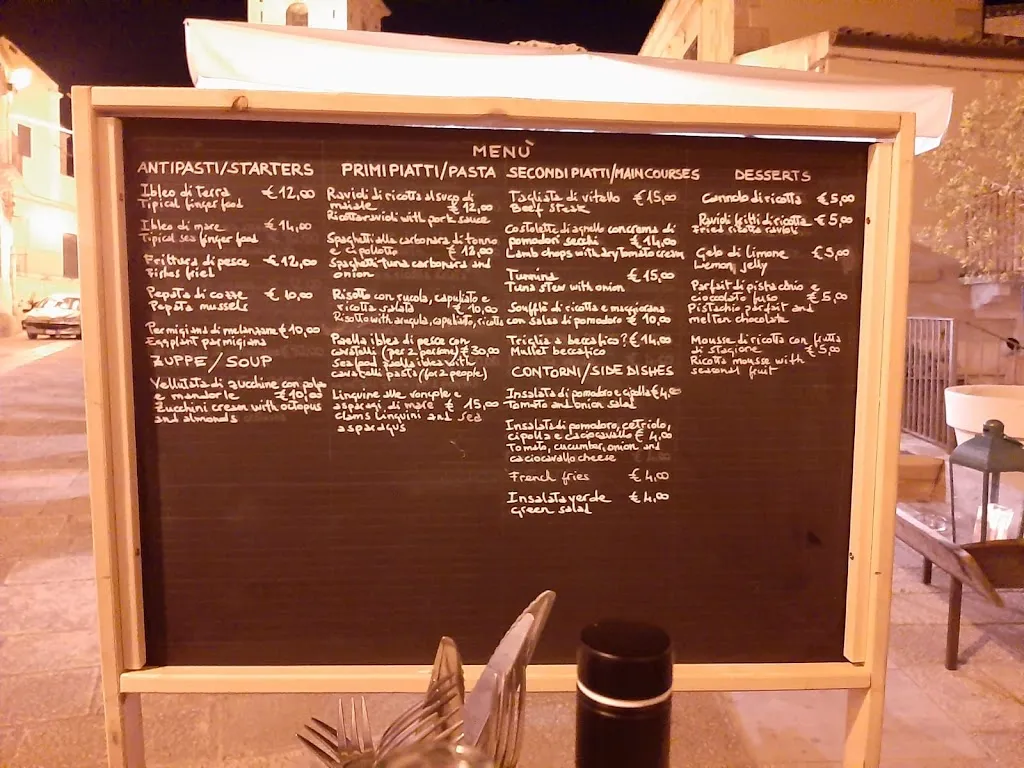 MENÙ
ANTIPASTI/STARTERS
Ibleo di terra € 12,00
Tipical finger food
Ibleo di mare € 14,00
Tipical sea finger food
Frittura di pesce € 12,00
Fishes fried
Pepata di cozze € 10,00
Pepata mussels
Parmigiana di melanzane € 10,00
Eggplant parmigiana
ZUPPE/SOUP
Vellutata di zucchine con polpo
e mandorle € 10,00
Zucchini cream with octopus
and almonds
PRIMI PIATTI/PASTA
Ravioli di ricotta al sugo di
maiale € 12,00
Ricotta ravioli with pork sauce
Spaghetti alla carbonara di tonno
e cipollotto € 12,00
Spaghetti tuna carbonara and
onion
Risotto con rucola, capuliato e
ricotta salata € 10,00
Risotto with arugula, capuliato, ricotta
Paella iblea di pesce con
cavatelli (per 2 persone) € 30,00
sea food paella iblea with
cavatelli pasta (for 2 people)
Linguine alle vongole e
asparagi di mare € 15,00
Clams linguini and sea
asparagus
SECONDI PIATTI/MAIN COURSES
Tagliata di vitello € 15,00
Beef steak
Costolette di agnello con crema di
pomodori secchi € 14,00
Lamb chops with dry tomato cream
Tunnina € 15,00
Tuna stew with onion
Soufflè di ricotta e maggiorana
con salsa di pomodoro € 10,00
Triglia a beccafico ? € 14,00
Mullet beccafico
CONTORNI/SIDE DISHES
Insalata di pomodoro e cipolla € 4,00
Tomato and onion salad
Insalata di pomodoro, cetriolo,
cipolla e caciocavallo € 4,00
Tomato, cucumber, onion and
caciocavallo cheese
French fries € 4,00
Insalata verde € 4,00
green salad
DESSERTS
Cannolo di ricotta € 5,00
Ravioli fritti di ricotta € 5,00
Fried ricotta ravioli
Gelo di limone € 5,00
Lemon jelly
Parfait di pistacchio e
cioccolato fuso € 5,00
Pistachio parfait and
melten chocolate
Mousse di ricotta con frutta
di stagione € 5,00
Ricotta mousse with
seasonal fruit